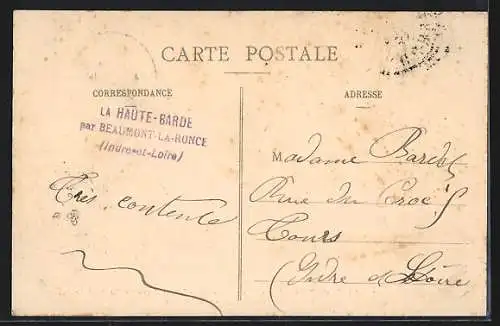 CARTE POSTALE
CORRESPONDANCE
LA HAUTE-BARDE
par BEAUMONT-LA-RONCE
(Indre-et-Loire)
Très contente
ADRESSE
Madame Bardet
Rue du Croc
Tours
(Indre et Loire